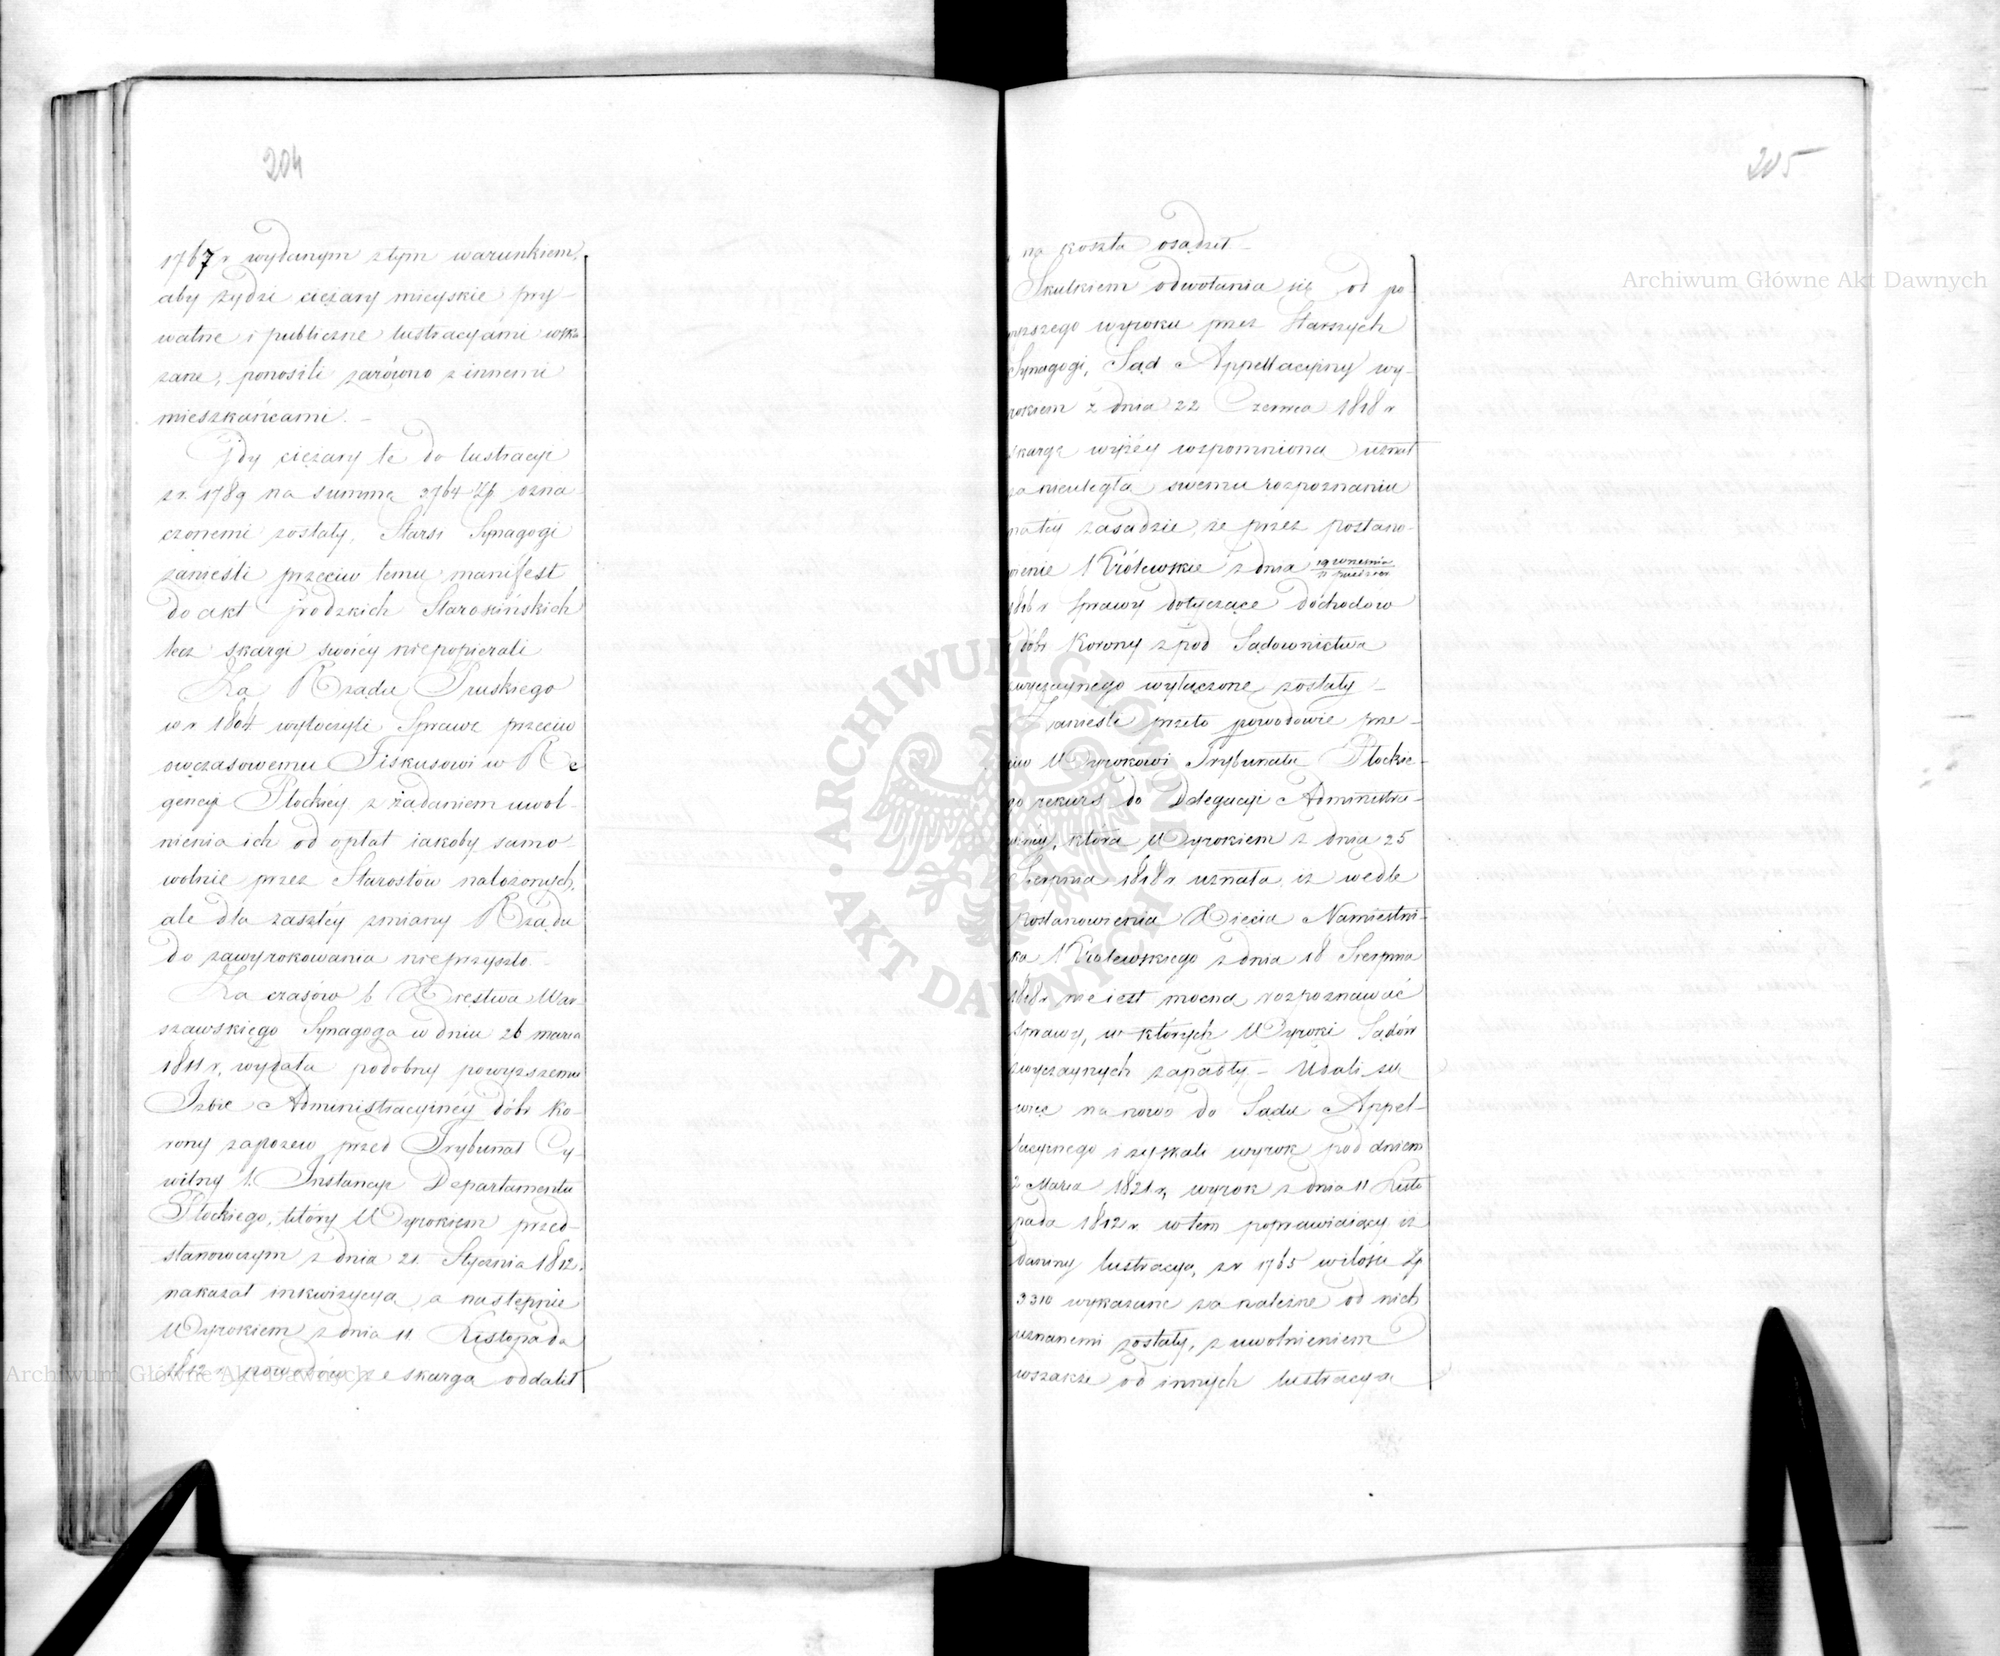 204
1767 r wydanym z tym warunkiem,
aby żydzi ciężary mieyskie pry-
watne i publiczne lustracyami wska
zane, ponosili zarówno z innemi
mieszkańcami. –
Gdy ciężary te do lustracyi
z r. 1789 na summę 3764 Zp ozna-
czonemi zostały, Starsi Synagogi
zanieśli przeciw temu manifest
do akt Grodzkich
lecz skargi swoiéy niepopierali
Za Rządu Pruskiego
w r 1804 wytoczyli Sprawę przeciw
owczasowemu Fiskusowi w Re
gencyi Płockiéy z żądaniem uwol-
nienia ich od opłat iakoby samo-
wolnie przez Starostów nałożonych,
ale dla zaszłéy zmiany Rządu
do zawyrokowania nieprzyszło.
Za czasów b Xięstwa War
szawskiego Synagoga w dniu 26 marca
1811 r, wydała podobny powyzszemu
Izbie Administracyinéy dóbr Ko-
rony zapozew przed Trybunał Cy-
wilny 1. Instancyi Departamentu
Płockiego, który Wyrokiem przed-
stanowczym z dnia 21 Stycznia 1812.
nakazał inkwizycyą, a następnie
Wyrokiem z dnia 11 Listopada
1812 r powodów ze skargą oddalił
205
i na koszta osądził –
Skutkiem odwołania się od po-
wyzszego wyroku przez Starszych
Synagogi, Sąd Appellacyiny wy-
rokiem z dnia 22 Czerwca 1818 r
skargę wyżéy wspomnioną uznał
za nieuległą swemu rozpoznaniu
na téy zasadzie, że przez postano-
wienie Królewskie z dnia 29 września
11 paździer
1816 r Sprawy dotyczące dochodów
z dóbr Korony z pod Sądownictwa
zwyczaynego wyłączone zostały –
Zanieśli przeto powodowie prze-
ciw Wyrokowi Trybunału Płockie-
go rekurs do Delegacyi Administra-
cyinéy, która Wyrokiem z dnia 25
Sierpnia 1818 r uznała, iz wedle
Postanowienia Xięcia Namiestni-
ka Królewskiego z dnia 18 Sierpnia
1818 r nie iest mocną rozpoznawać
Sprawy, w których Wyroki Sądów
zwyczaynych zapadły – Udali się
więc na nowo do Sądu Appel-
lacyinego i zyskali wyrok pod dniem
2 Marca 1821 r, wyrok z dnia 11 Listo
pada 1812 r w tem poprawiaiący, iż
daniny lustracyą z r 1765 w ilości Zp
3310 wykazane za należne od nich
uznanemi zostały, z uwolnieniem
wszakże od innych lustracyą
ARCHIWUM GŁÓWNE AKT DAWNYCH
Archiwum Główne Akt Dawnych
Archiwum Główne Akt Dawnych